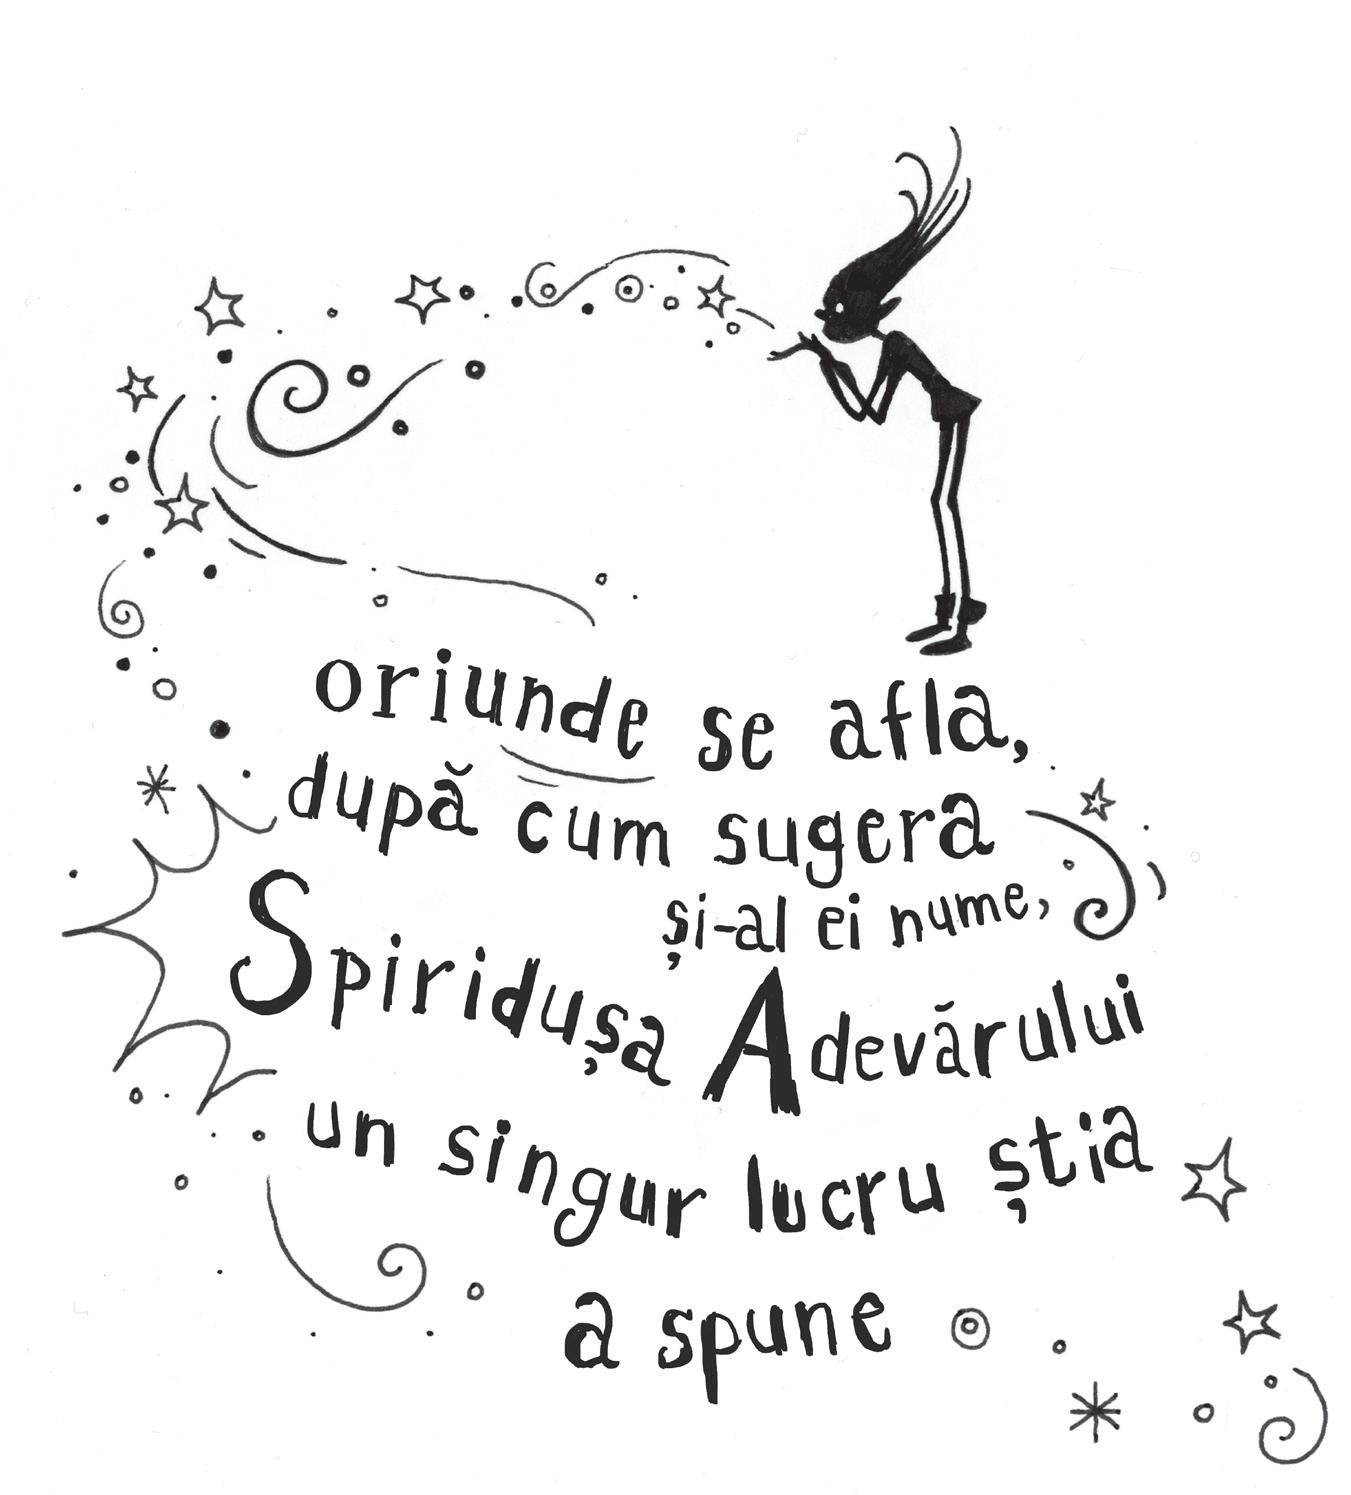 oriunde se afla,
după cum sugera
și-al ei nume,
Spiridușa Adevărului
un singur lucru știa
a spune